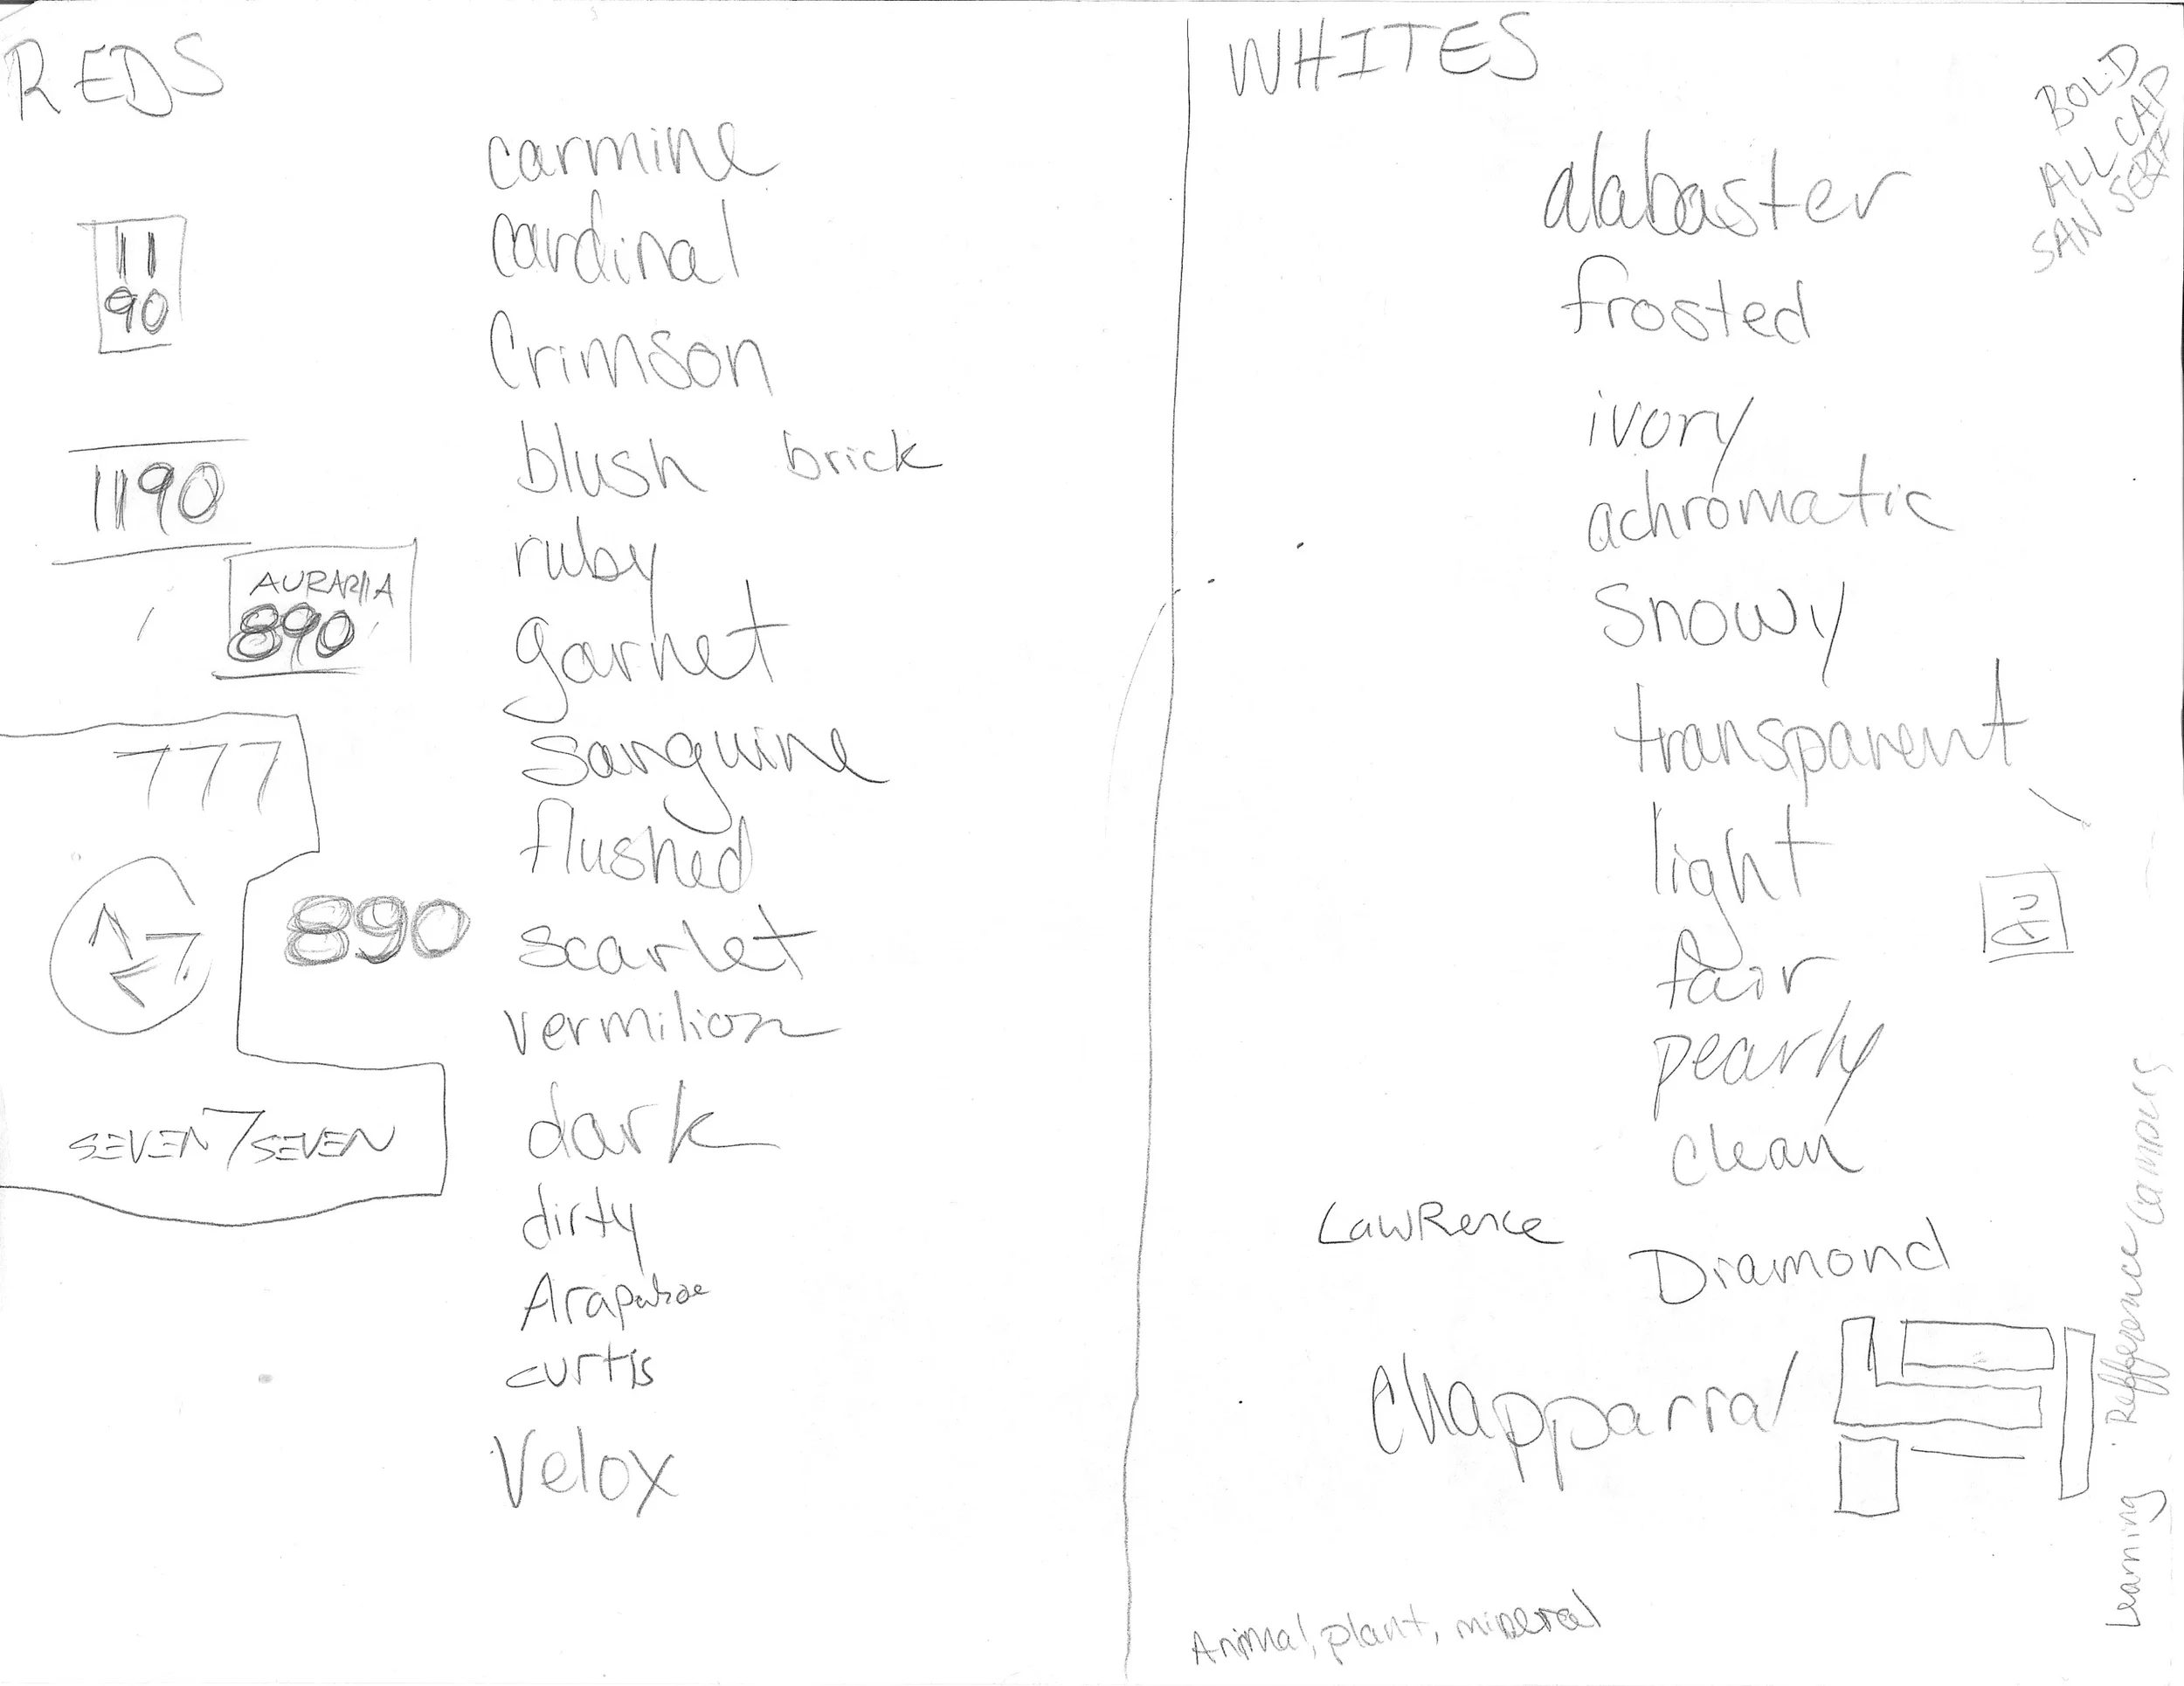 REDS
carmine
cardinal
11
90
Crimson
blush brick
1190
ruby
AURARIA
890
garnet
sanguine
777
flushed
890
scarlet
vermilion
dark
SEVEN7SEVEN
dirty
Arapahoe
curtis
Velox
WHITES
BOLD
ALL CAP
SAN SERIF
alabaster
frosted
ivory
achromatic
Snowy
transparent
light
fair
pearly
clean
LawRence
Diamond
Chapparral
Learning Refference
Animal, plant, mineral